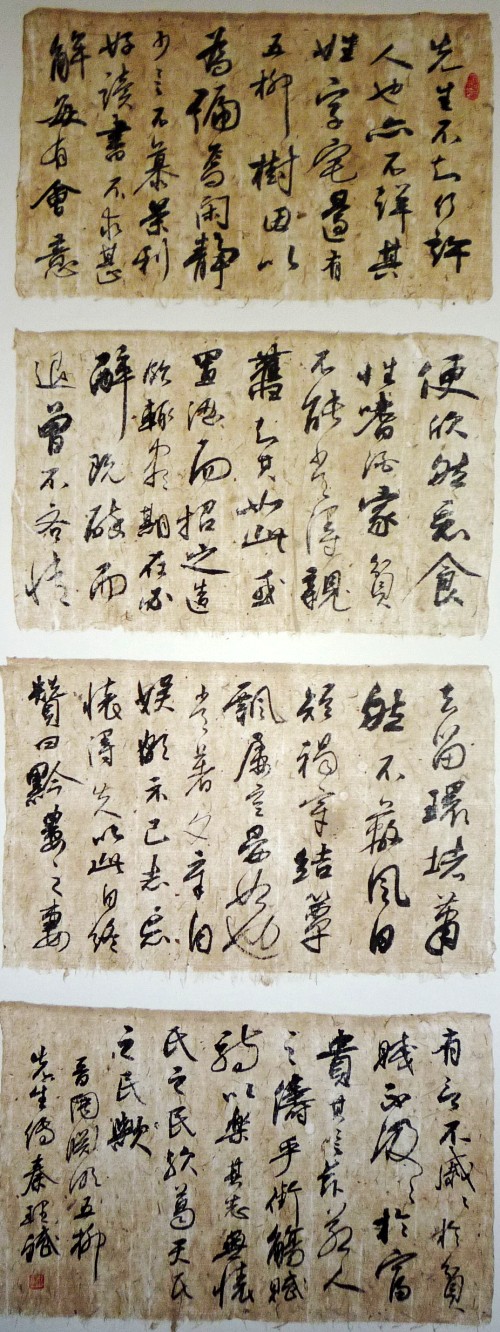 先生不知何許
人也亦不詳其
姓字宅邊有
五柳樹因以
為號焉閑靜
少言不慕榮利
好讀書不求甚
解每有會意
便欣然忘食
性嗜酒家貧
不能常得親
舊知其如此或
置酒而招之造
飲輒盡期在必
醉既醉而
退曾不吝情
去留環堵蕭
然不蔽風日
短褐穿結簞
瓢屢空晏如也
常著文章自
娛頗示己志忘
懷得失以此自終
贊曰黔婁之妻
有言不戚々於貧
賤不汲々於富
貴其言茲若人
之儔乎銜觴賦
詩以樂其志無懷
氏之民歟葛天氏
之民歟
晋陶淵明五柳
先生傳秦